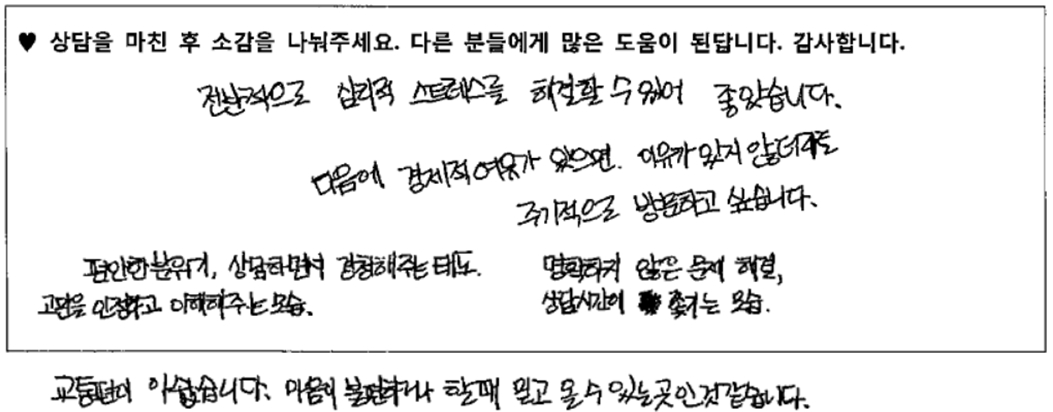 ♥ 상담을 마친 후 소감을 나눠주세요. 다른 분들에게 많은 도움이 된답니다. 감사합니다.
전반적으로 심리적 스트레스를 해결할 수 있어 좋았습니다.
다음에 경제적 여유가 있으면. 이유가 있지 않더라도
주기적으로 방문하고 싶습니다.
편안한 분위기, 상담하면서 경청해주는 태도.
고민을 인정하고 이해해주는 모습.
명확하지 않은 문제 해결,
상담시간에 쫓기는 모습.
교통편이 아쉽습니다. 마음이 불편하거나 할때 믿고 올 수 있는 곳인것 같습니다.